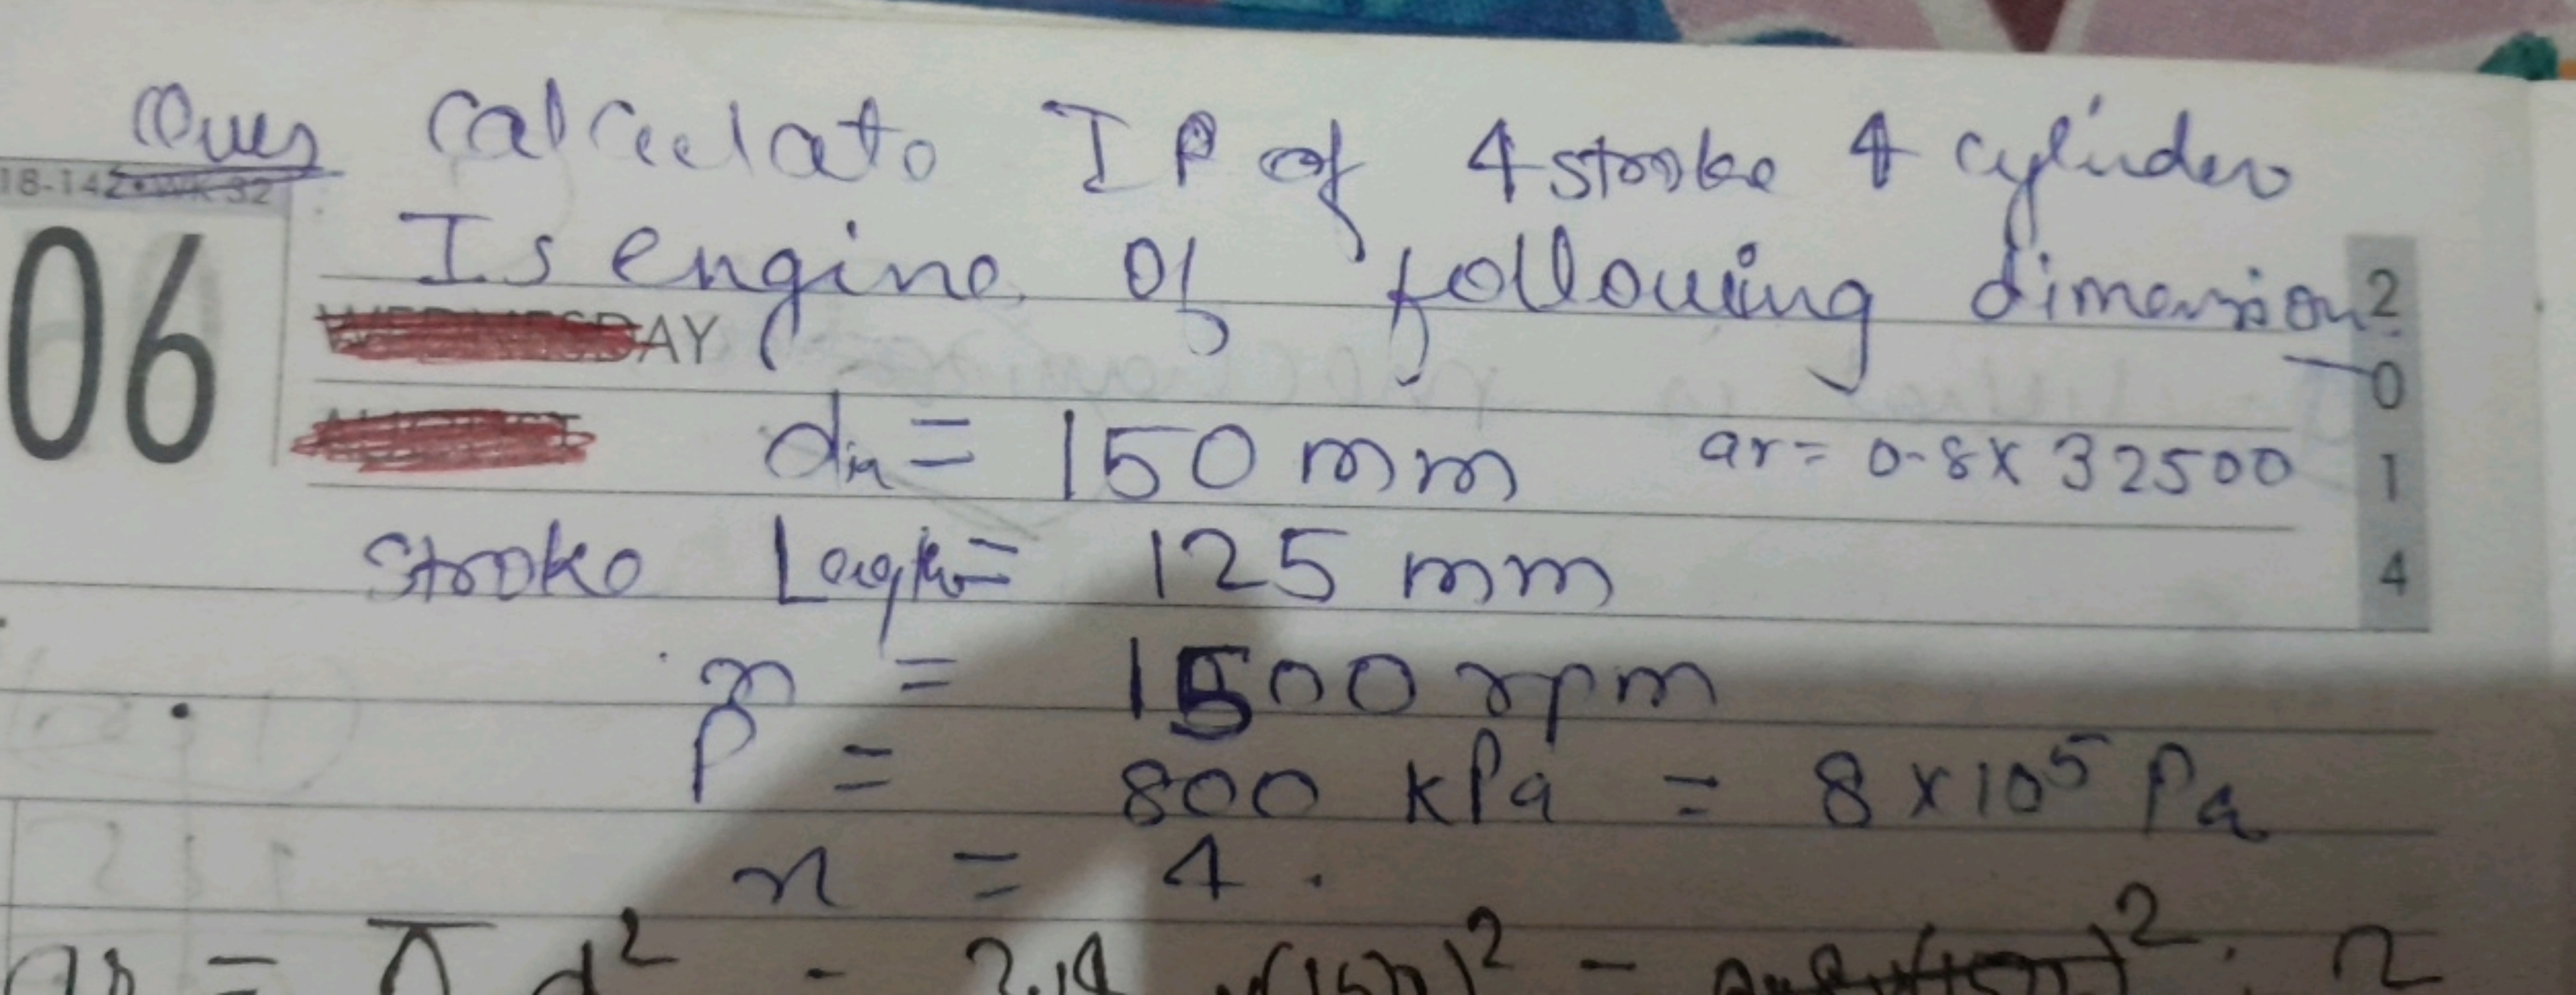 Ques Calculate IP of 4 stroke 4 cylinder
18-142•WK 32
06
Is engine of following dimension
2014
AY
dia = 150 mm ar = 0.8 x 32500
Stroke Length = 125 mm
n = 1500 rpm
P = 800 kPa = 8 x 10⁵ Pa
n = 4.